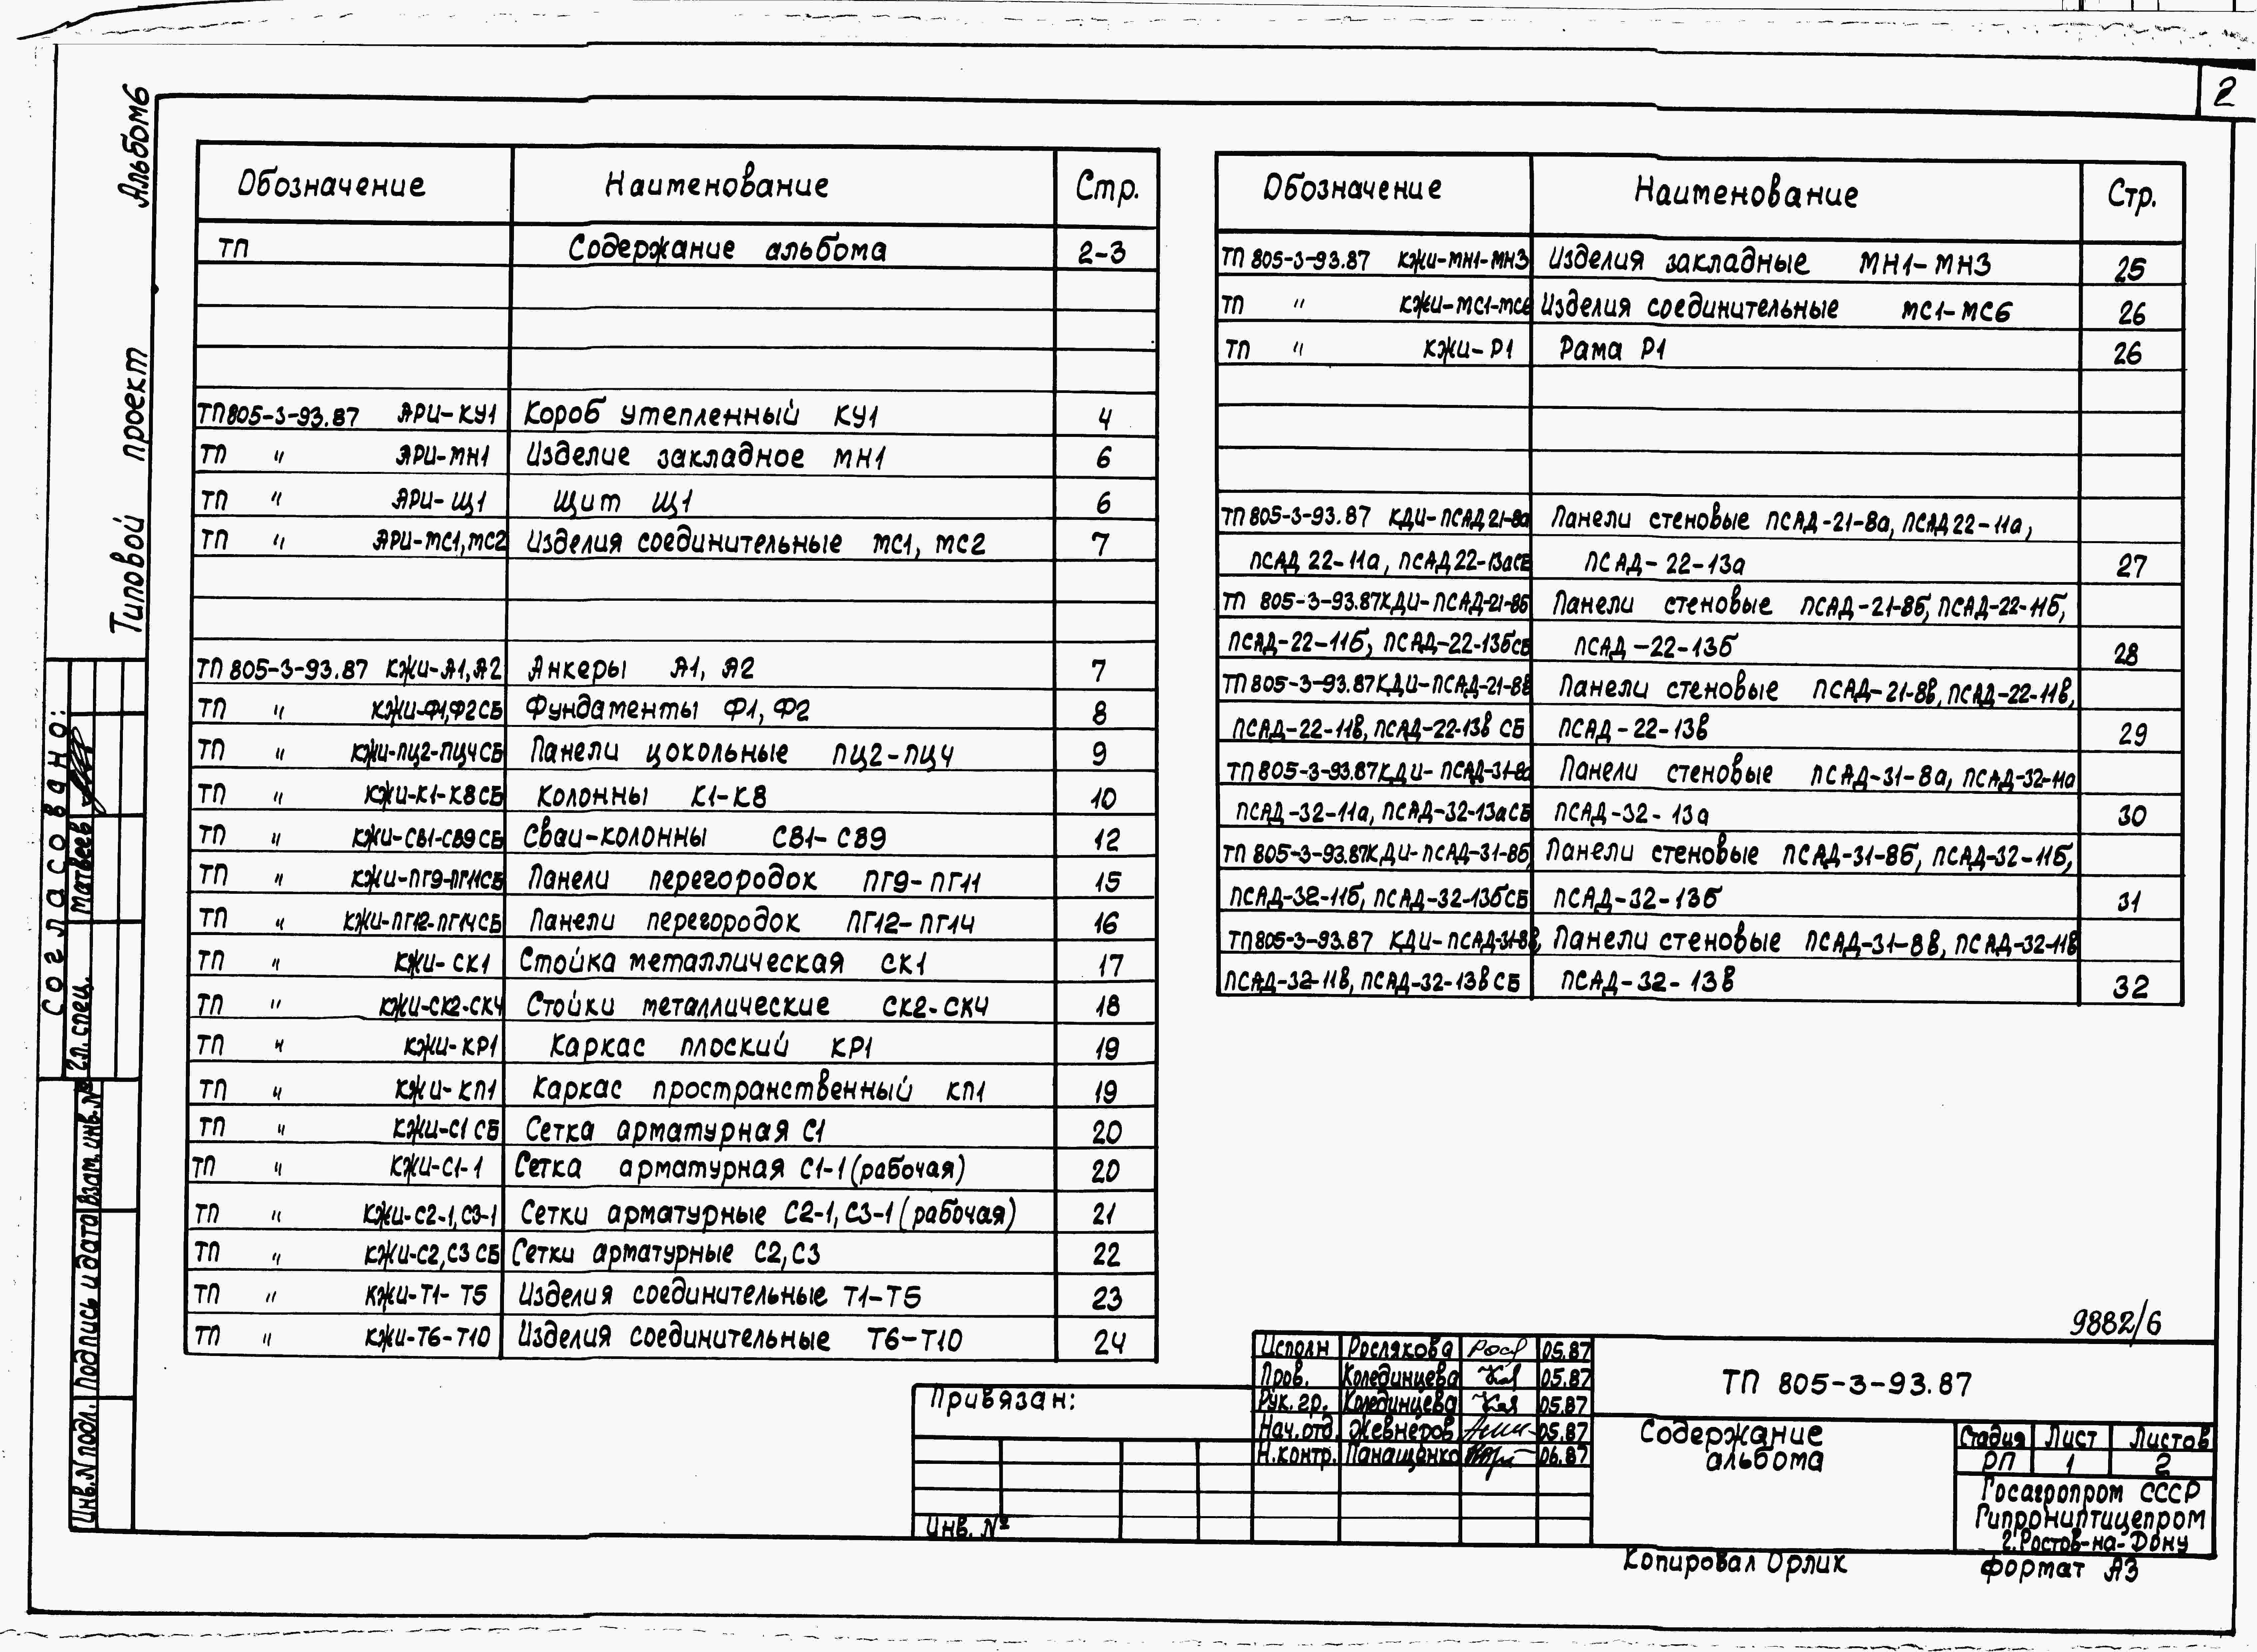 2
Типовой проект Альбом 6
Обозначение Наименование Стр.
ТП Содержание альбома 2-3
ТП 805-3-93.87 АРИ-КУ1 Короб утепленный КУ1 4
ТП " АРИ-МН1 Изделие закладное МН1 6
ТП " АРИ-Щ1 Щит Щ1 6
ТП " АРИ-МС1, МС2 Изделия соединительные МС1, МС2 7
ТП 805-3-93.87 КЖИ-А1, А2 Анкеры А1, А2 7
ТП " КЖИ-Ф1,Ф2СБ Фундаменты Ф1, Ф2 8
ТП " КЖИ-ПЦ2-ПЦ4СБ Панели цокольные ПЦ2-ПЦ4 9
ТП " КЖИ-К1-К8СБ Колонны К1-К8 10
ТП " КЖИ-СВ1-СВ9СБ Сваи-колонны СВ1-СВ9 12
ТП " КЖИ-ПГ9-ПГ11СБ Панели перегородок ПГ9-ПГ11 15
ТП " КЖИ-ПГ12-ПГ14СБ Панели перегородок ПГ12-ПГ14 16
ТП " КЖИ-СК1 Стойка металлическая СК1 17
ТП " КЖИ-СК2-СК4 Стойки металлические СК2-СК4 18
ТП " КЖИ-КР1 Каркас плоский КР1 19
ТП " КЖИ-КП1 Каркас пространственный КП1 19
ТП " КЖИ-С1 СБ Сетка арматурная С1 20
ТП " КЖИ-С1-1 Сетка арматурная С1-1 (рабочая) 20
ТП " КЖИ-С2-1, С3-1 Сетки арматурные С2-1, С3-1 (рабочая) 21
ТП " КЖИ-С2, С3 СБ Сетки арматурные С2, С3 22
ТП " КЖИ-Т1-Т5 Изделия соединительные Т1-Т5 23
ТП " КЖИ-Т6-Т10 Изделия соединительные Т6-Т10 24
Обозначение Наименование Стр.
ТП 805-3-93.87 КЖИ-МН1-МН3 Изделия закладные МН1-МН3 25
ТП " КЖИ-МС1-МС6 Изделия соединительные МС1-МС6 26
ТП " КЖИ-Р1 Рама Р1 26
ТП 805-3-93.87 КДИ-ПСАД 21-8а Панели стеновые ПСАД-21-8а, ПСАД 22-11а,
ПСАД 22-11а, ПСАД 22-13аСБ ПСАД-22-13а 27
ТП 805-3-93.87 КДИ-ПСАД-21-8б Панели стеновые ПСАД-21-8б, ПСАД-22-11б,
ПСАД-22-11б, ПСАД-22-13бСБ ПСАД-22-13б 28
ТП 805-3-93.87 КДИ-ПСАД-21-8в Панели стеновые ПСАД-21-8в, ПСАД-22-11в,
ПСАД-22-11в, ПСАД-22-13в СБ ПСАД-22-13в 29
ТП 805-3-93.87 КДИ-ПСАД-31-8а Панели стеновые ПСАД-31-8а, ПСАД-32-11а
ПСАД-32-11а, ПСАД-32-13аСБ ПСАД-32-13а 30
ТП 805-3-93.87 КДИ-ПСАД-31-8б, Панели стеновые ПСАД-31-8б, ПСАД-32-11б,
ПСАД-32-11б, ПСАД-32-13бСБ ПСАД-32-13б 31
ТП 805-3-93.87 КДИ-ПСАД-31-8в, Панели стеновые ПСАД-31-8в, ПСАД-32-11в
ПСАД-32-11в, ПСАД-32-13в СБ ПСАД-32-13в 32
Согласовано:
Гл. спец. Матвеев
Инв. N подл. Подпись и дата Взам. инв. №
9882/6
Привязан:
Инв. №
Исполн Рослякова Рос 05.87
Пров. Колединцева 05.87
Рук. гр. Колединцева 05.87
Нач. отд. Жевнеров 05.87
Н. контр. Панащенко 06.87
ТП 805-3-93.87
Содержание
альбома
Стадия Лист Листов
РП 1 2
Госагропром СССР
Гипрониптицепром
г. Ростов-на-Дону
Копировал Орлик Формат А3